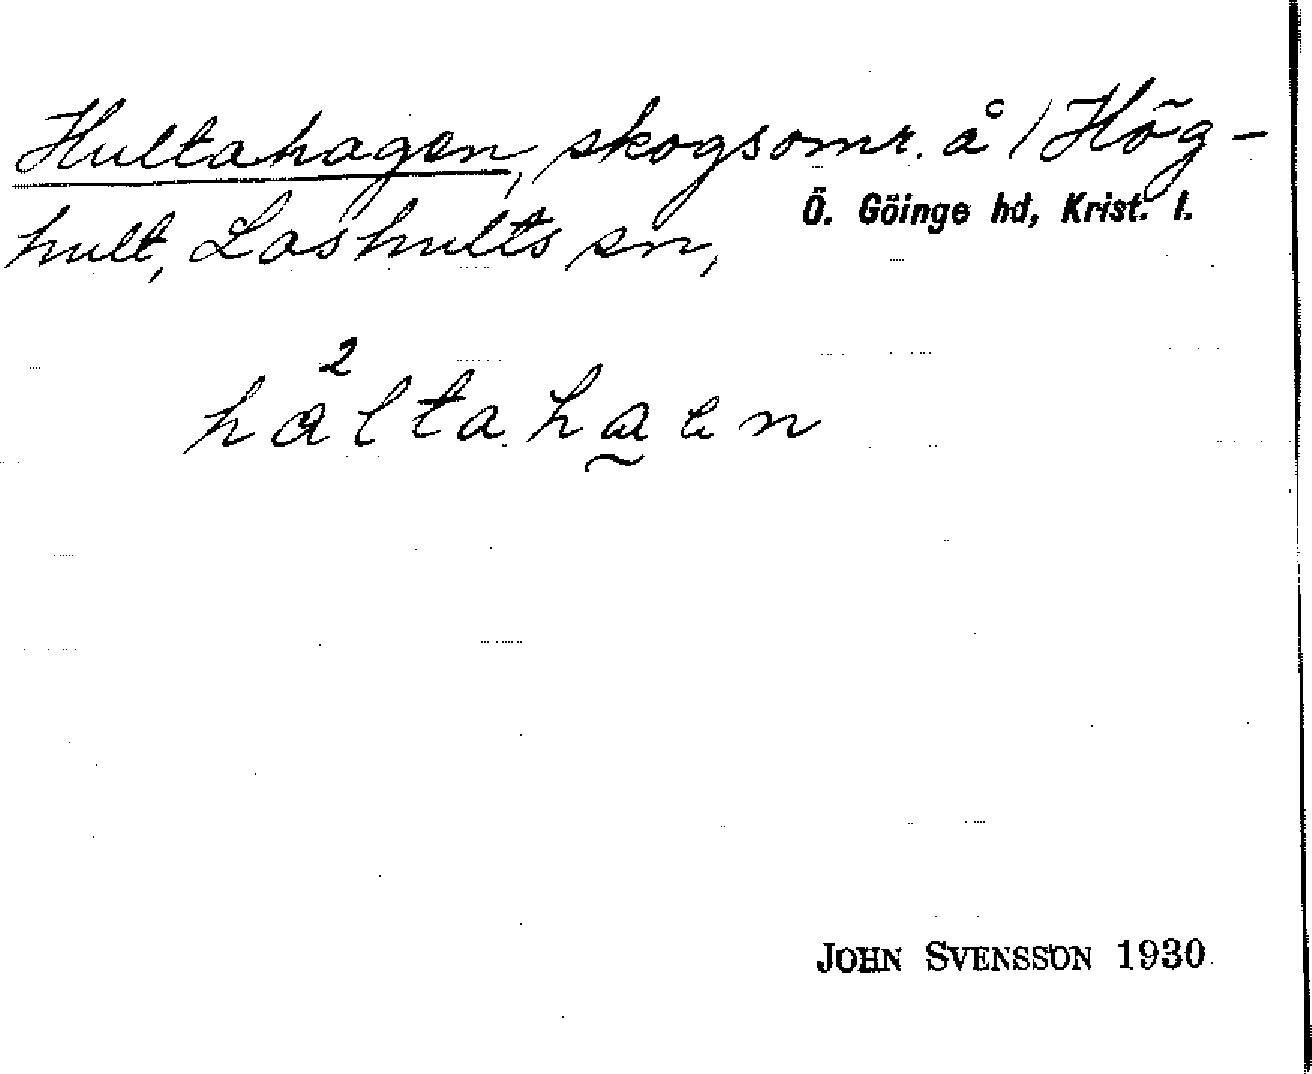 Hultahagen, skogsomr. å / Hög-
hult, Loshults sn,
Ö. Göinge hd, Krist. l.
2
håltahaen
JOHN SVENSSON 1930